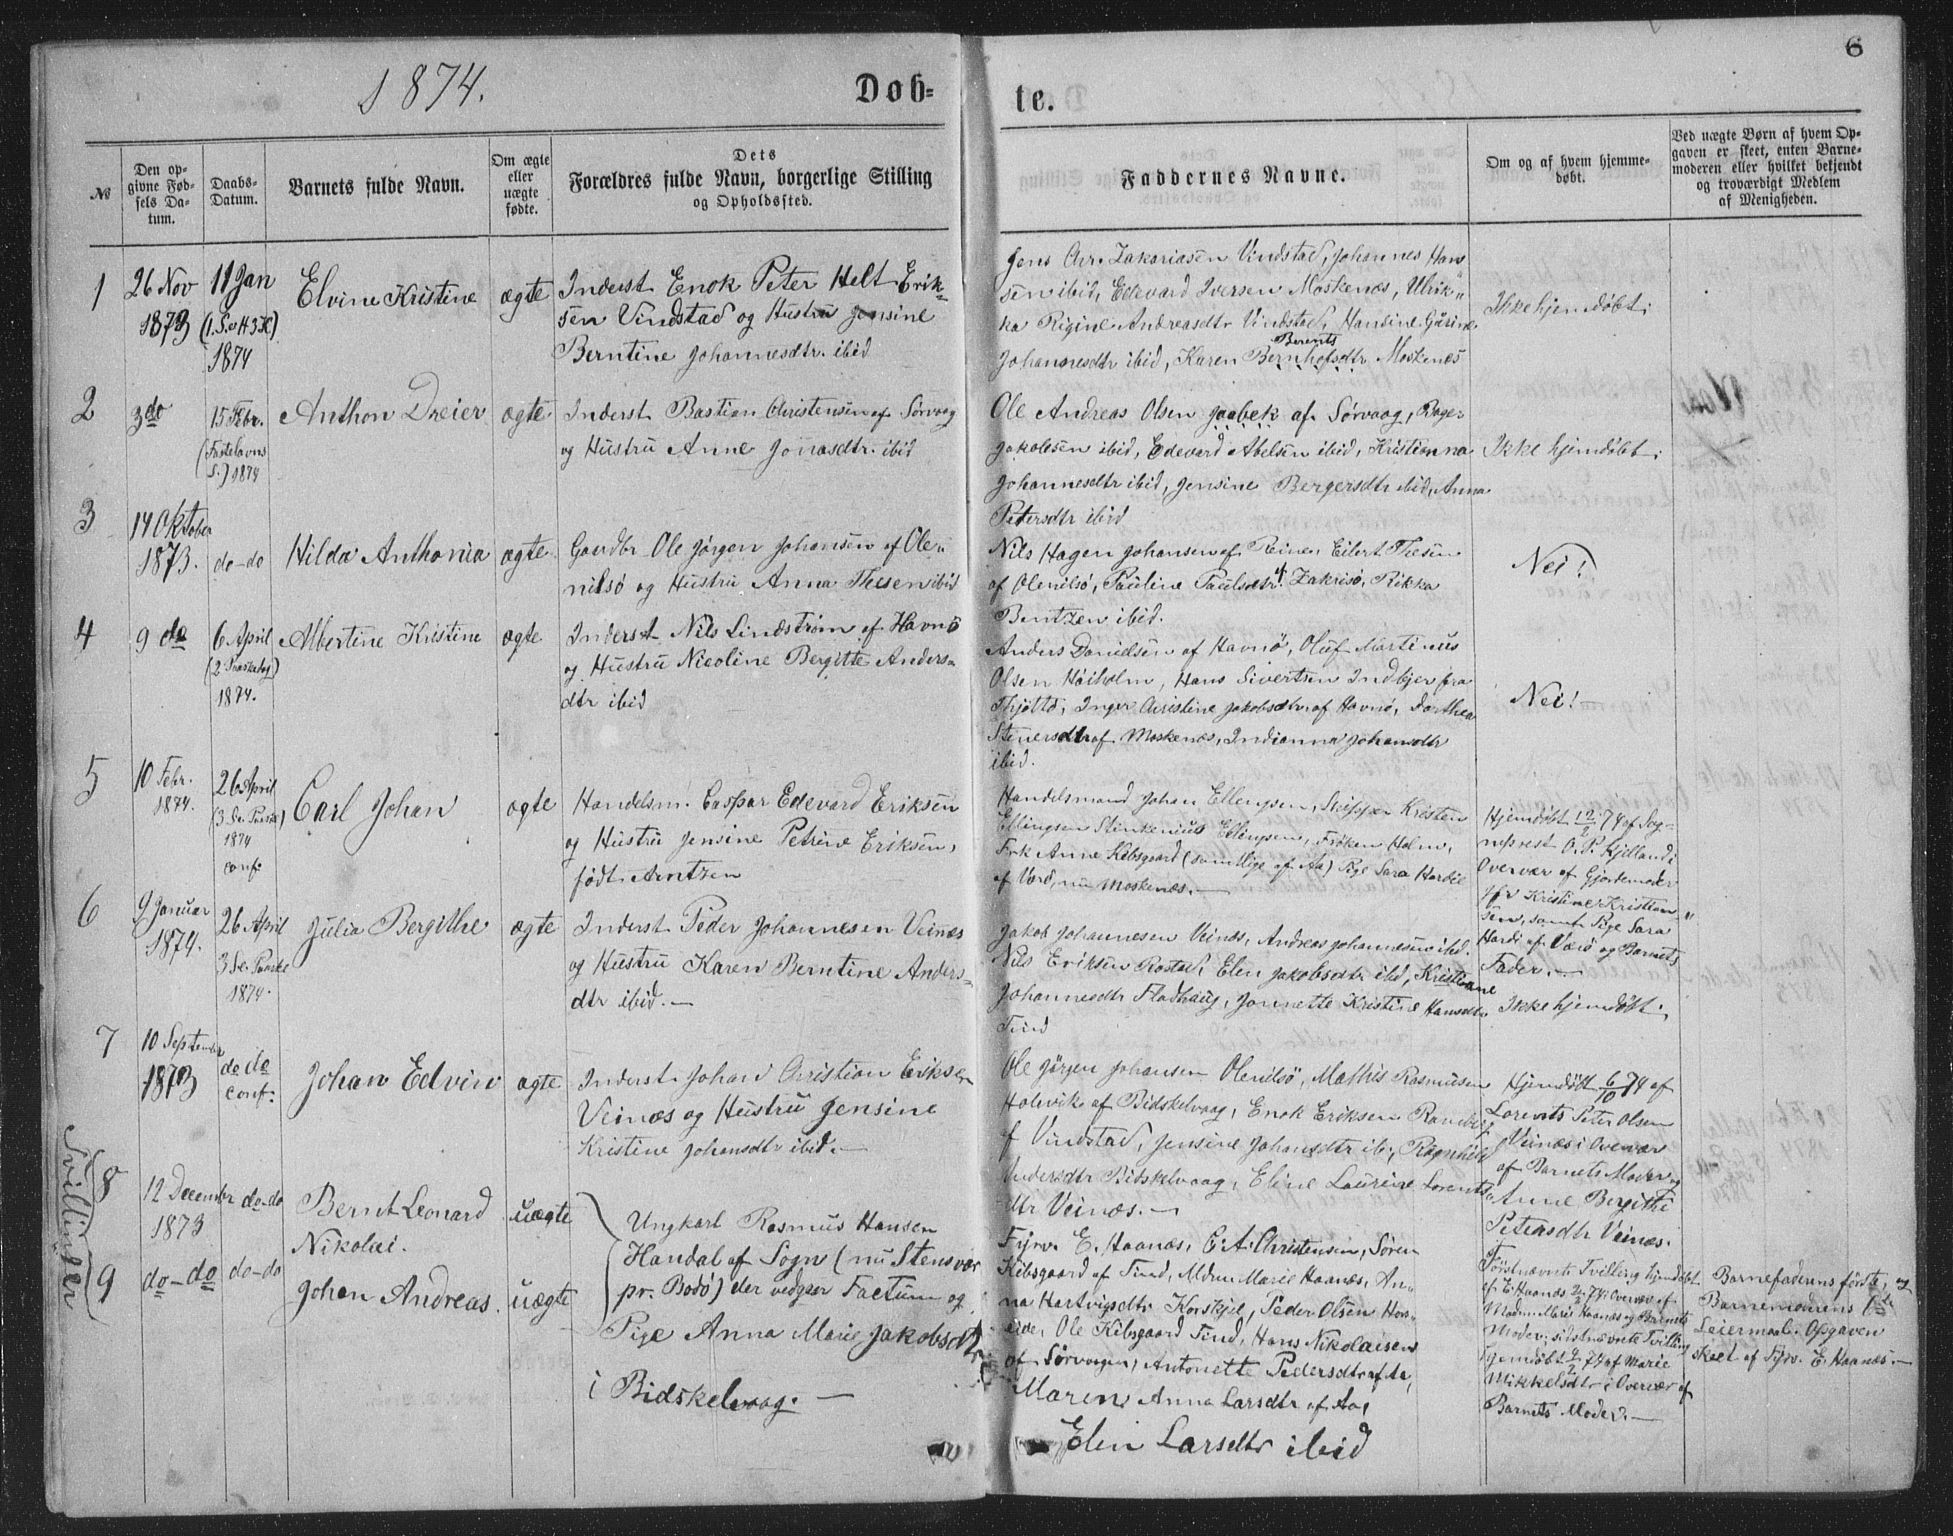 6
1874.
Døb-
te.
№
Den op-
givne Fød-
sels Da-
tum.
Daabs-
Datum.
Barnets fulde Navn.
Om ægte
eller
uægte
fødte.
Dets
Forældres fulde Navn, borgerlige Stilling
og Opholdssted.
Faddernes Navne.
Om og af hvem hjemme-
døbt.
Ved uægte Børn af hvem Op-
gaven er skeet, enten Barne-
moderen eller hvilket bekjendt
og troværdigt Medlem
af Menigheden.
1
26 Nov
1873
11 Jan
(1.S.e H3K)
1874
Elvine Kristine
ægte
Inderst Enok Peter Helt Erik-
sen Vindstad og Hustru Jensine
Berntine Johannesdtr. ibid
Jens Chr. Zakariasen Vindstad, Johannes Han-
sen ibid, Edevard Iversen Moskenes, Ulrik-
ka Rigine Andreasdtr Vindstad, Hansine
Berents
Johannesdtr ibid, Karen Bernhofsdtr Moskenes
Ikke hjemdøbt.
2
3do
15 Febr.
(Fastelavns
S.) 1874
Anthon Dreier
ægte
Inderst Bastian Christensen af Sørvaag
og Hustru Anne Jonasdtr. ibid
Ole Andreas Olsen Jaabek af Sørvaag,
Jakobsen ibid, Edevard Abelsen ibid, Kristianna
Johannesdtr ibid, Jensine Bergersdtr ibid, Anna
Petersdtr ibid
Ikke hjemdøbt.
3
14 Oktober
1873.
do-do
Hilda Anthonia
ægte
Gaardbr Ole Jørgen Johansen af Ole-
nilsø og Hustru Anna Thesen ibid
Nils Hagen Johansen af Reine, Eilert Thesen
af Olenilsø, Pauline Paulsdtr af Zakrisø, Rikka
Bentzen ibid.
Nei!
4
9 do
6 April
(2 Paaskedag)
1874.
Albertine Kristine
ægte
Inderst Nils Lindstrøm af Havnø
og Hustru Nicoline Bergitte Anders-
dtr ibid
Anders Danielsen af Havnø, Oluf Martinus
Olsen Høiholm, Hans Sivertsen Indbjer fra
Thjøttø, Inger Christine Jakobsdtr af Havnø, Dorthea
Stenersdtr af Moskenæs, Indianna Johansdtr
ibid.
Nei!
5
10 Febr.
1874.
26 April
1874
conf.
Carl Johan
ægte
Handelsm. Caspar Edevard Eriksen
og Hustru Jensine Petrine Eriksen,
født Arntzen
Handelsmand Johan Ellingsen, Skipper Kristen
Ellingsen, Ellingsen, Frøken Holm,
Frk Anne Kibsgaard (samtlige af Aa) Pige Sara Hardie
af Værø, nu Moskenæs.
Hjemdøbt 12/2 74 af Sog-
neprest O.P. Kjelland i
Overvær af Gjordemoder
Kristine Kristian-
sen, samt Pige Sara
Hardi af Værø og Barnets
Fader.
6
9 Januar
1874.
26 April
3 Se. Paaske
1874.
Julia Bergithe
ægte
Inderst Peder Johannesen Veinæs
og Hustru Karen Berntine Anders-
dtr ibid.
Jakob Johannesen Veinæs, Andreas Johannesen ibid.
Nils Eriksen Rostad, Elen Jakobsdtr ibid, Kristiane
Johannesdtr Fladhaug, Jonnette Kristine Hansdtr
Tind
Ikke hjemdøbt.
7
10 September
1873
do do
conf.
Johan Edvin
ægte
Inderst Johan Christian Eriksen
Veinæs og Hustru Jensine
Kristine Johansdtr ibid.
Ole Jørgen Johansen Olenilsø, Mathis Rasmussen
Holevik af Bidskelvaag, Enok Eriksen Ramberg
f Vindstad, Jensine Johansdtr ib., Ragnhild
Andersdtr Bidskelvaag, Eline Laurine Lorents-
dtr Veinæs.
Hjemdøbt 6/10 74 af
Lorents Peter Olsen
Veinæs i Overvær
af Barnets Moder og
Anne Bergithe
Petersdtr Veinæs.
Tvillinger
8
12 December
1873
do-do
Bernt Leonard
Nikolai.
uægte
Ungkarl Rasmus Hansen
Handal af Sogn (nu Stensvær
pr. Bodø) der vedgaar Factum og
Pige Anna Marie Jakobsdtr
i Bidskelvaag.
9
do-do
do-do
Johan Andreas.
uægte
Fyrv. E. Haanæs, C.A. Christensen, Søren
Kibsgaard af Tind, Mdm. Marie Haanæs, An-
na Hartvigsdtr Korshjel, Peder Olsen Hors-
eide, Ole Kibsgaard Tind, Hans Nikolaisen
af Sørvaagen, Antonette Pedersdtr af Aa,
Maren Anna Larsdtr af Aa,
Elen Larsdtr ibid
Førstnævnte Tvilling hjemdøbt
af E. Haanæs 2/2 74 i Overvær af
Madm. Marie Haanæs og Barnets
Moder. sidstnævnte Tvilling
hjemdøbt 2/2 74 af Marie
Mikkelsdtr i Overvær af
Barnets Moder.
Barnefaderens første, og
Barnemoderens 1ste
Leiermaal. Opgaven
skeet af Fyrv. E. Haanæs.